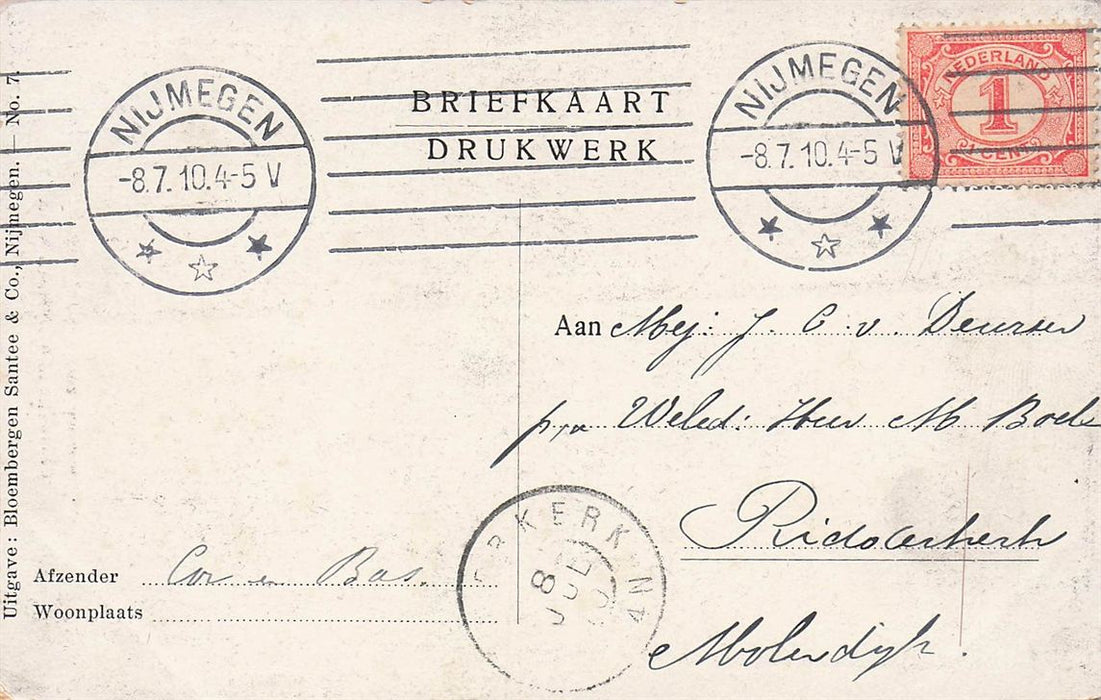 NIJMEGEN
-8.7.10.4-5 V
BRIEFKAART
DRUKWERK
NIJMEGEN
-8.7.10.4-5 V
NEDERLAND
1
1 CENT
Aan Mej: J. C. v. Deursen
p/a Weled: Heer M Boele
Ridderkerk
Molendijk.
Afzender Cor en Bas.
Woonplaats
8 JUL
Uitgave: Bloembergen Santee & Co., Nijmegen. — No. 7.